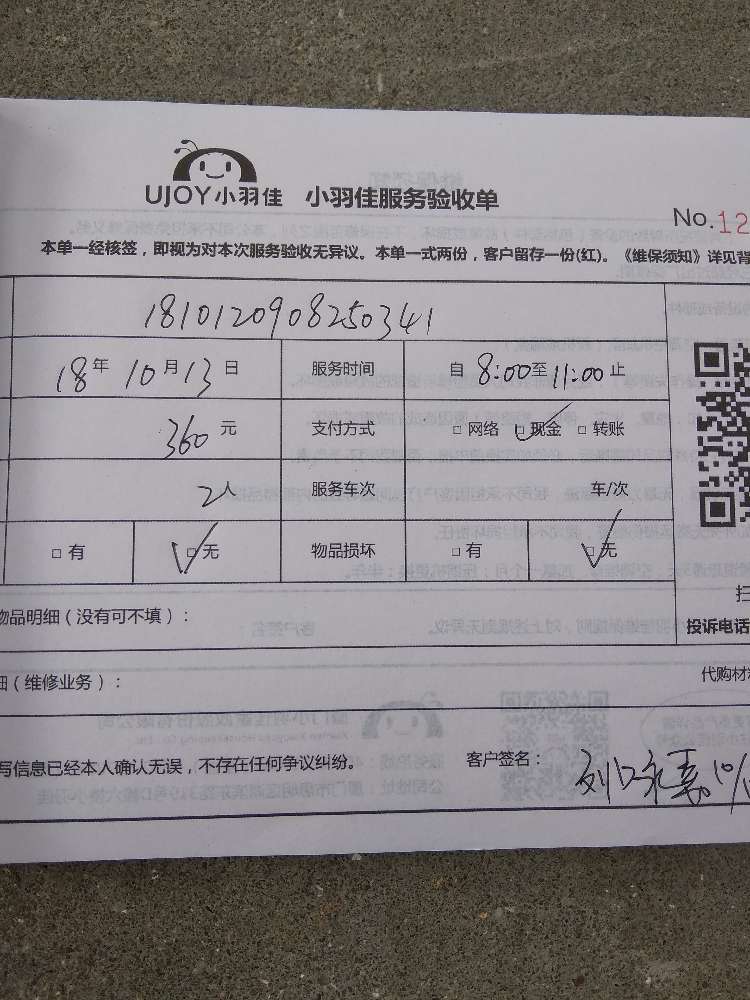 UJOY小羽佳 小羽佳服务验收单
No.12
本单一经核签，即视为对本次服务验收无异议。本单一式两份，客户留存一份(红)。《维保须知》详见背
1810120908250341
18年10月13日 服务时间 自8:00至11:00止
360元 支付方式 □网络 ☑现金 □转账
2人 服务车次 车/次
□有 ☑无 物品损坏 □有 ☑无
物品明细（没有可不填）：
投诉电话
（维修业务）：
代购材
写信息已经本人确认无误，不存在任何争议纠纷。 客户签名：